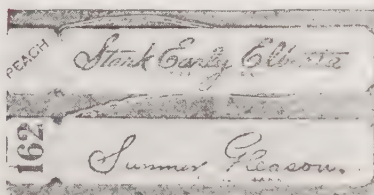 PEACH
Stark Early Elberta
162
Sumner Gleason.